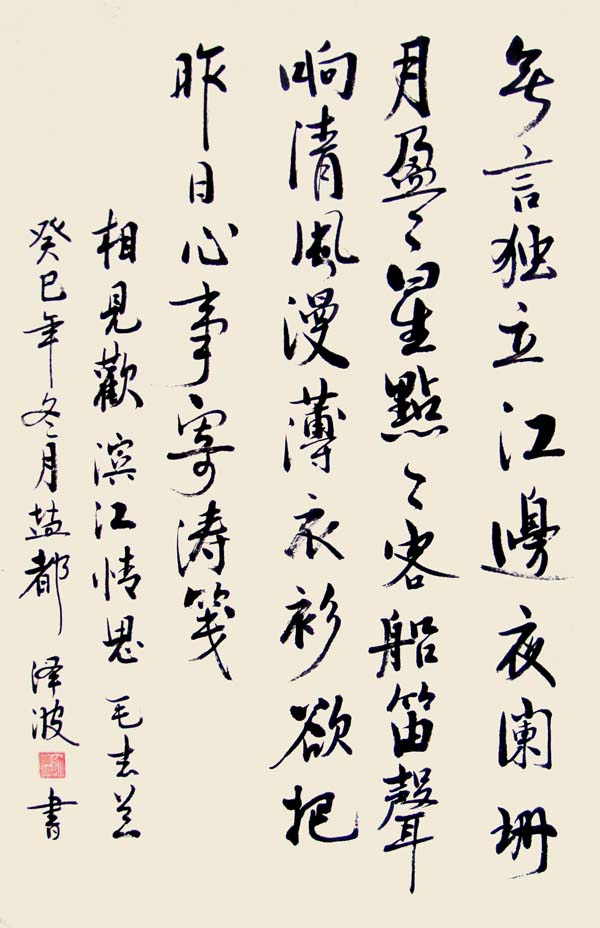 無言独立江邊夜阑珊
月盈々星點々客船笛聲
响清風漫薄衣衫欲把
昨日心事寄涛笺
相見歡 滨江情思 毛志兰
癸巳年冬月盐都 泽波 書